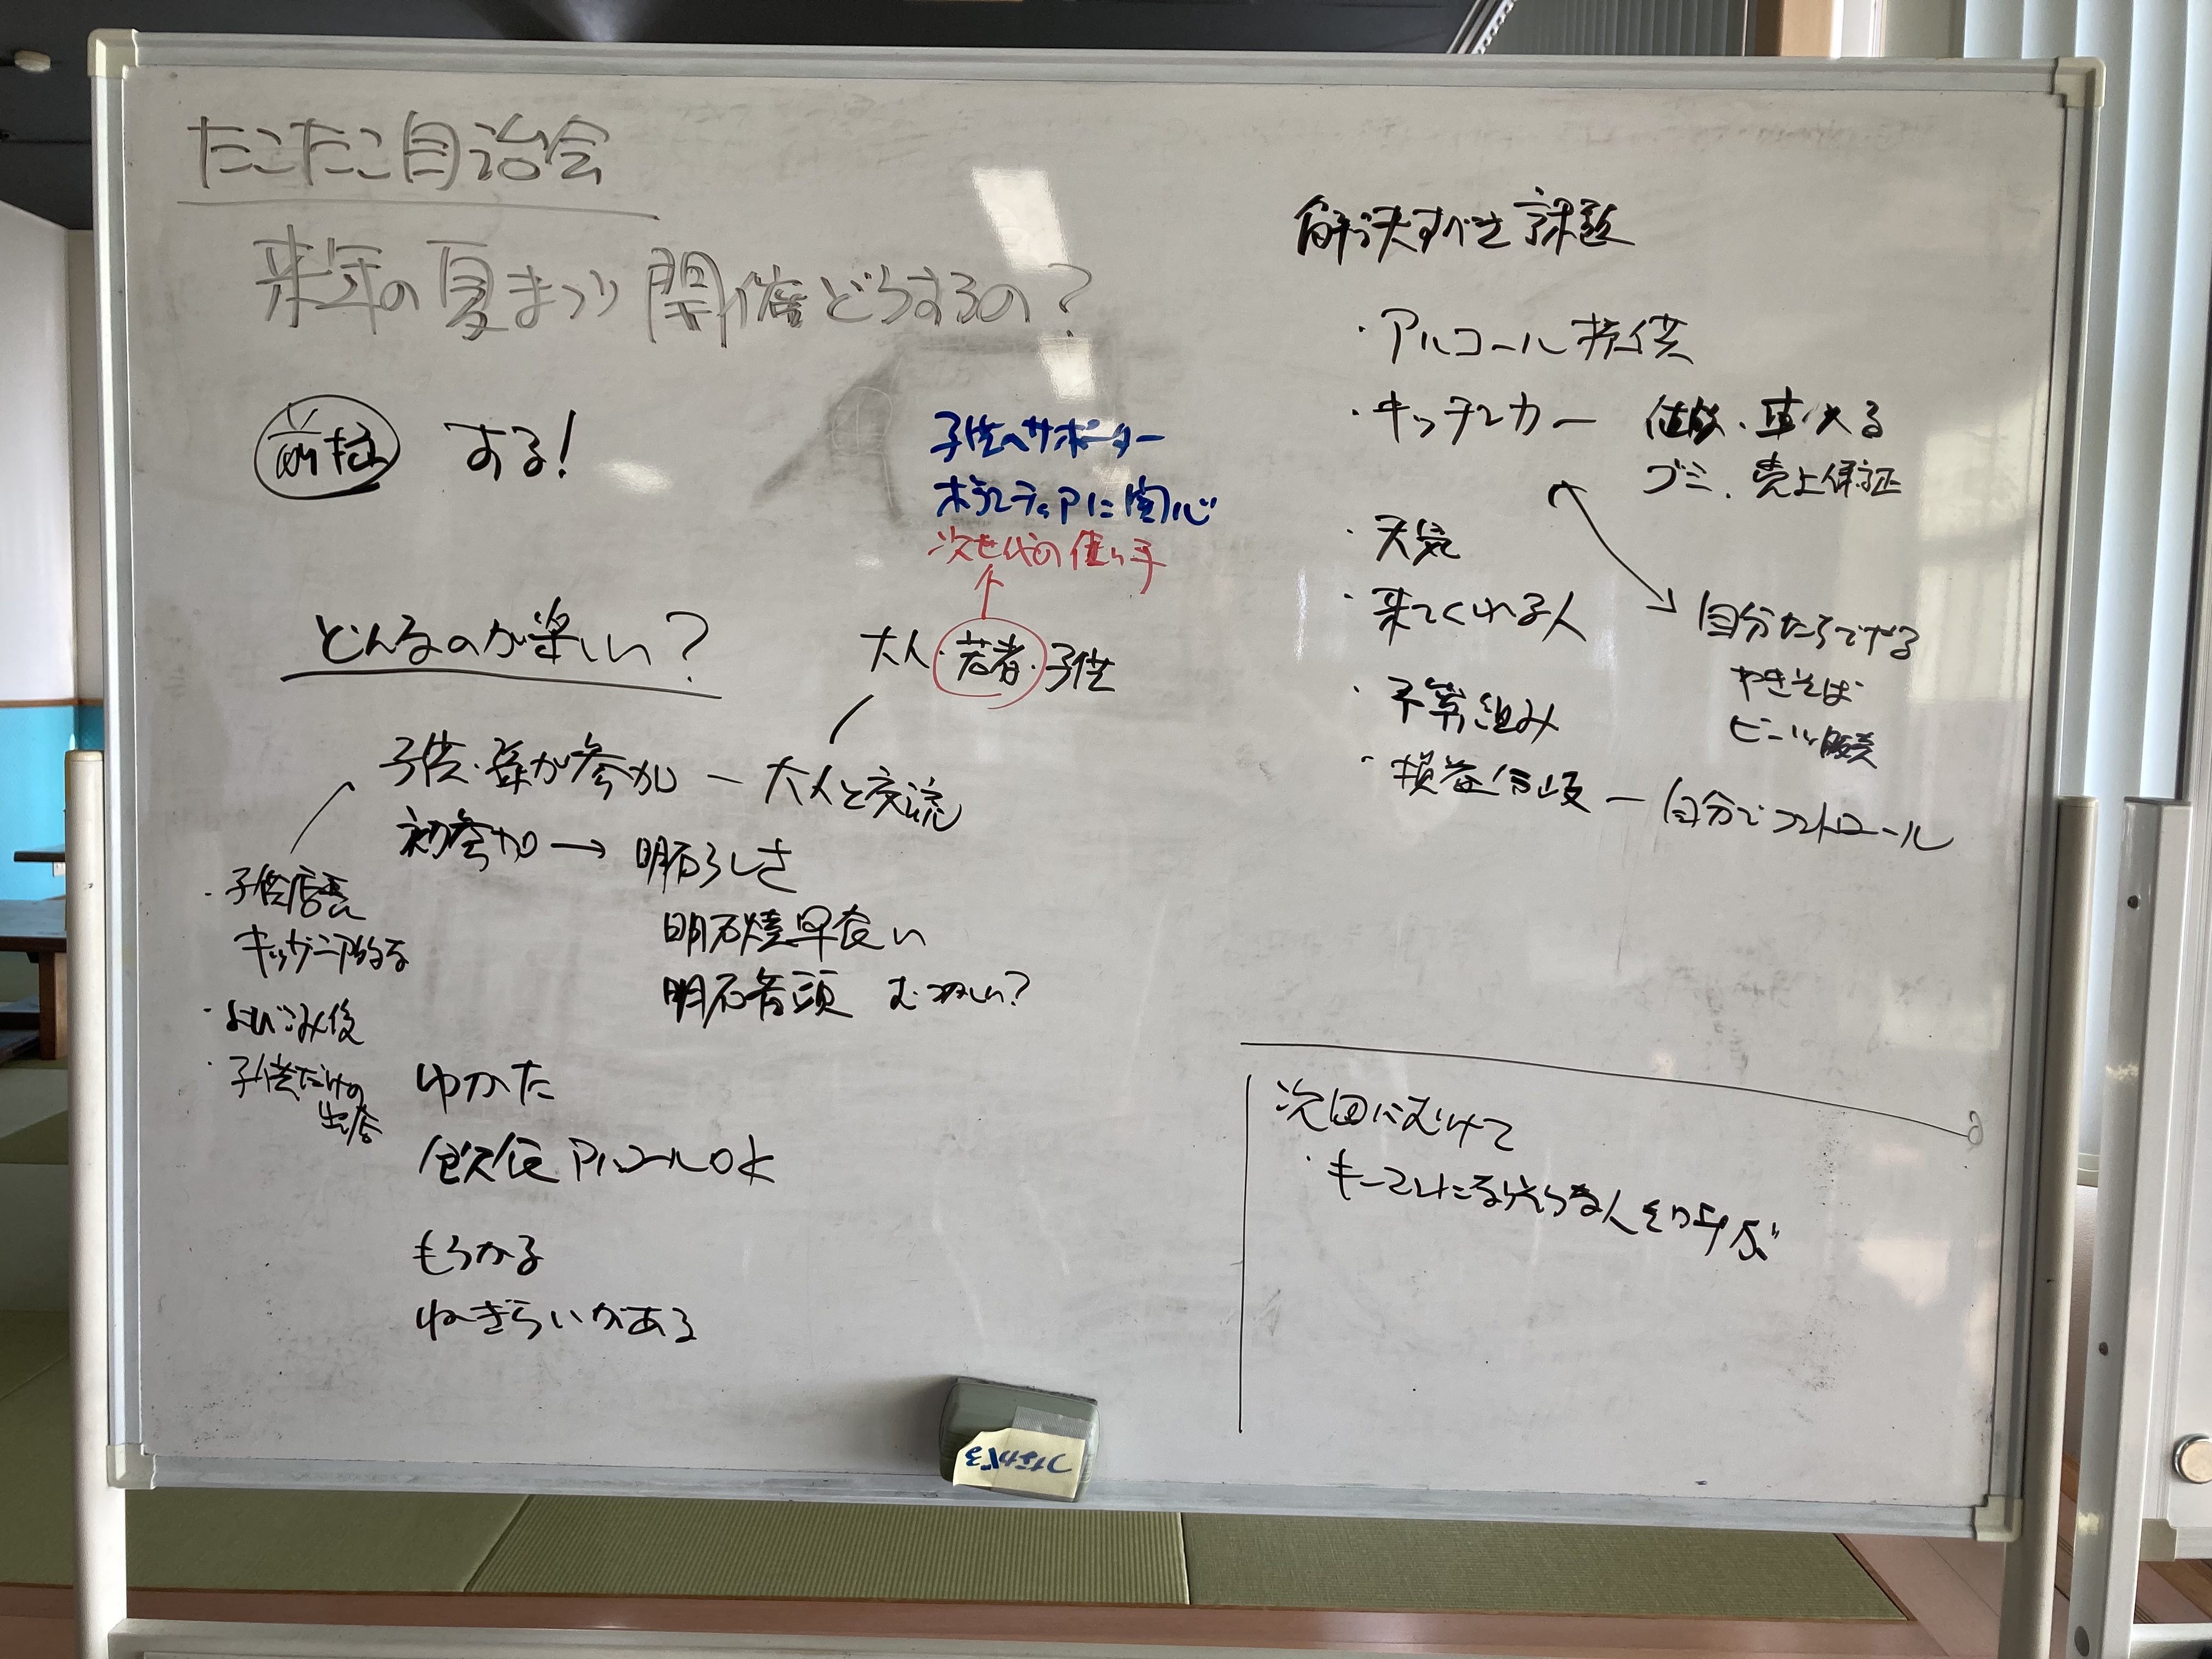 たこたこ自治会
来年の夏まつり開催どうするの？
前提 する！
子供へサポーター
ボランティアに関心
次世代の担い手
どんなのが楽しい？
大人・若者・子供
子供・孫が参加 ー 大人と交流
初参加 → 明石らしさ
明石焼早食い
明石音頭 むずかしい？
・子供店長
キッザニア的な
・よびこみ役
・子供だけの
出店
ゆかた
飲食 アルコールOK
もうかる
ねぎらいがある
解決すべき課題
・アルコール提供
・キッチンカー 値段・車入る
ゴミ、売上保証
・天気
・来てくれる人
・予算組み
・損益分岐 ー 自分でコントロール
自分たちでやる
やきそば
ビール販売
次回にむけて
・キーマンになりそうな人を呼ぶ
つながる